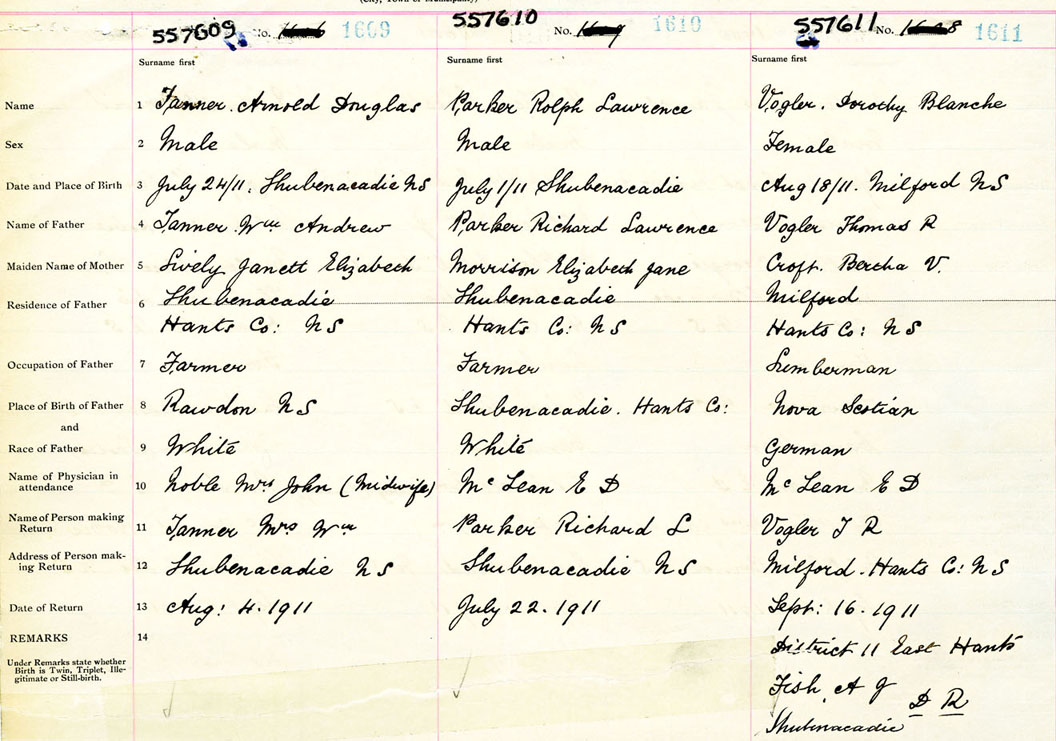 (City, Town or Municipality)
557609 No. 1609
557610 No. 1610
557611 No. 1611
Surname first Surname first Surname first
Name 1 Tanner. Arnold Douglas Parker Rolph Lawrence Vogler. Dorothy Blanche
Sex 2 Male Male Female
Date and Place of Birth 3 July 24/11. Shubenacadie NS July 1/11 Shubenacadie Aug 18/11. Milford NS
Name of Father 4 Tanner. Wm Andrew Parker Richard Lawrence Vogler Thomas R
Maiden Name of Mother 5 Lively Janett Elizabeth Morrison Elizabeth Jane Croft. Bertha V.
Residence of Father 6 Shubenacadie Shubenacadie Milford
Hants Co: NS Hants Co: NS Hants Co: NS
Occupation of Father 7 Farmer Farmer Lumberman
Place of Birth of Father 8 Rawdon NS Shubenacadie. Hants Co: Nova Scotian
and
Race of Father 9 White White German
Name of Physician in
attendance 10 Noble Mrs John (Midwife) Mc Lean E D Mc Lean E D
Name of Person making
Return 11 Tanner Mrs Wm Parker Richard L Vogler T R
Address of Person mak-
ing Return 12 Shubenacadie NS Shubenacadie NS Milford. Hants Co: NS
Date of Return 13 Aug: 4. 1911 July 22. 1911 Sept: 16. 1911
REMARKS 14
District 11 East Hants
Under Remarks state whether
Birth is Twin, Triplet, Ille-
gitimate or Still-birth.
Fish, A J D R
Shubenacadie